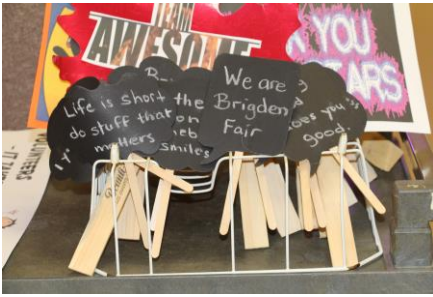 TEAM
AWESOME
YOU
EARS
Life is short
do stuff that
matters
the
on
smiles
We are
Brigden
Fair
oes you is
good.